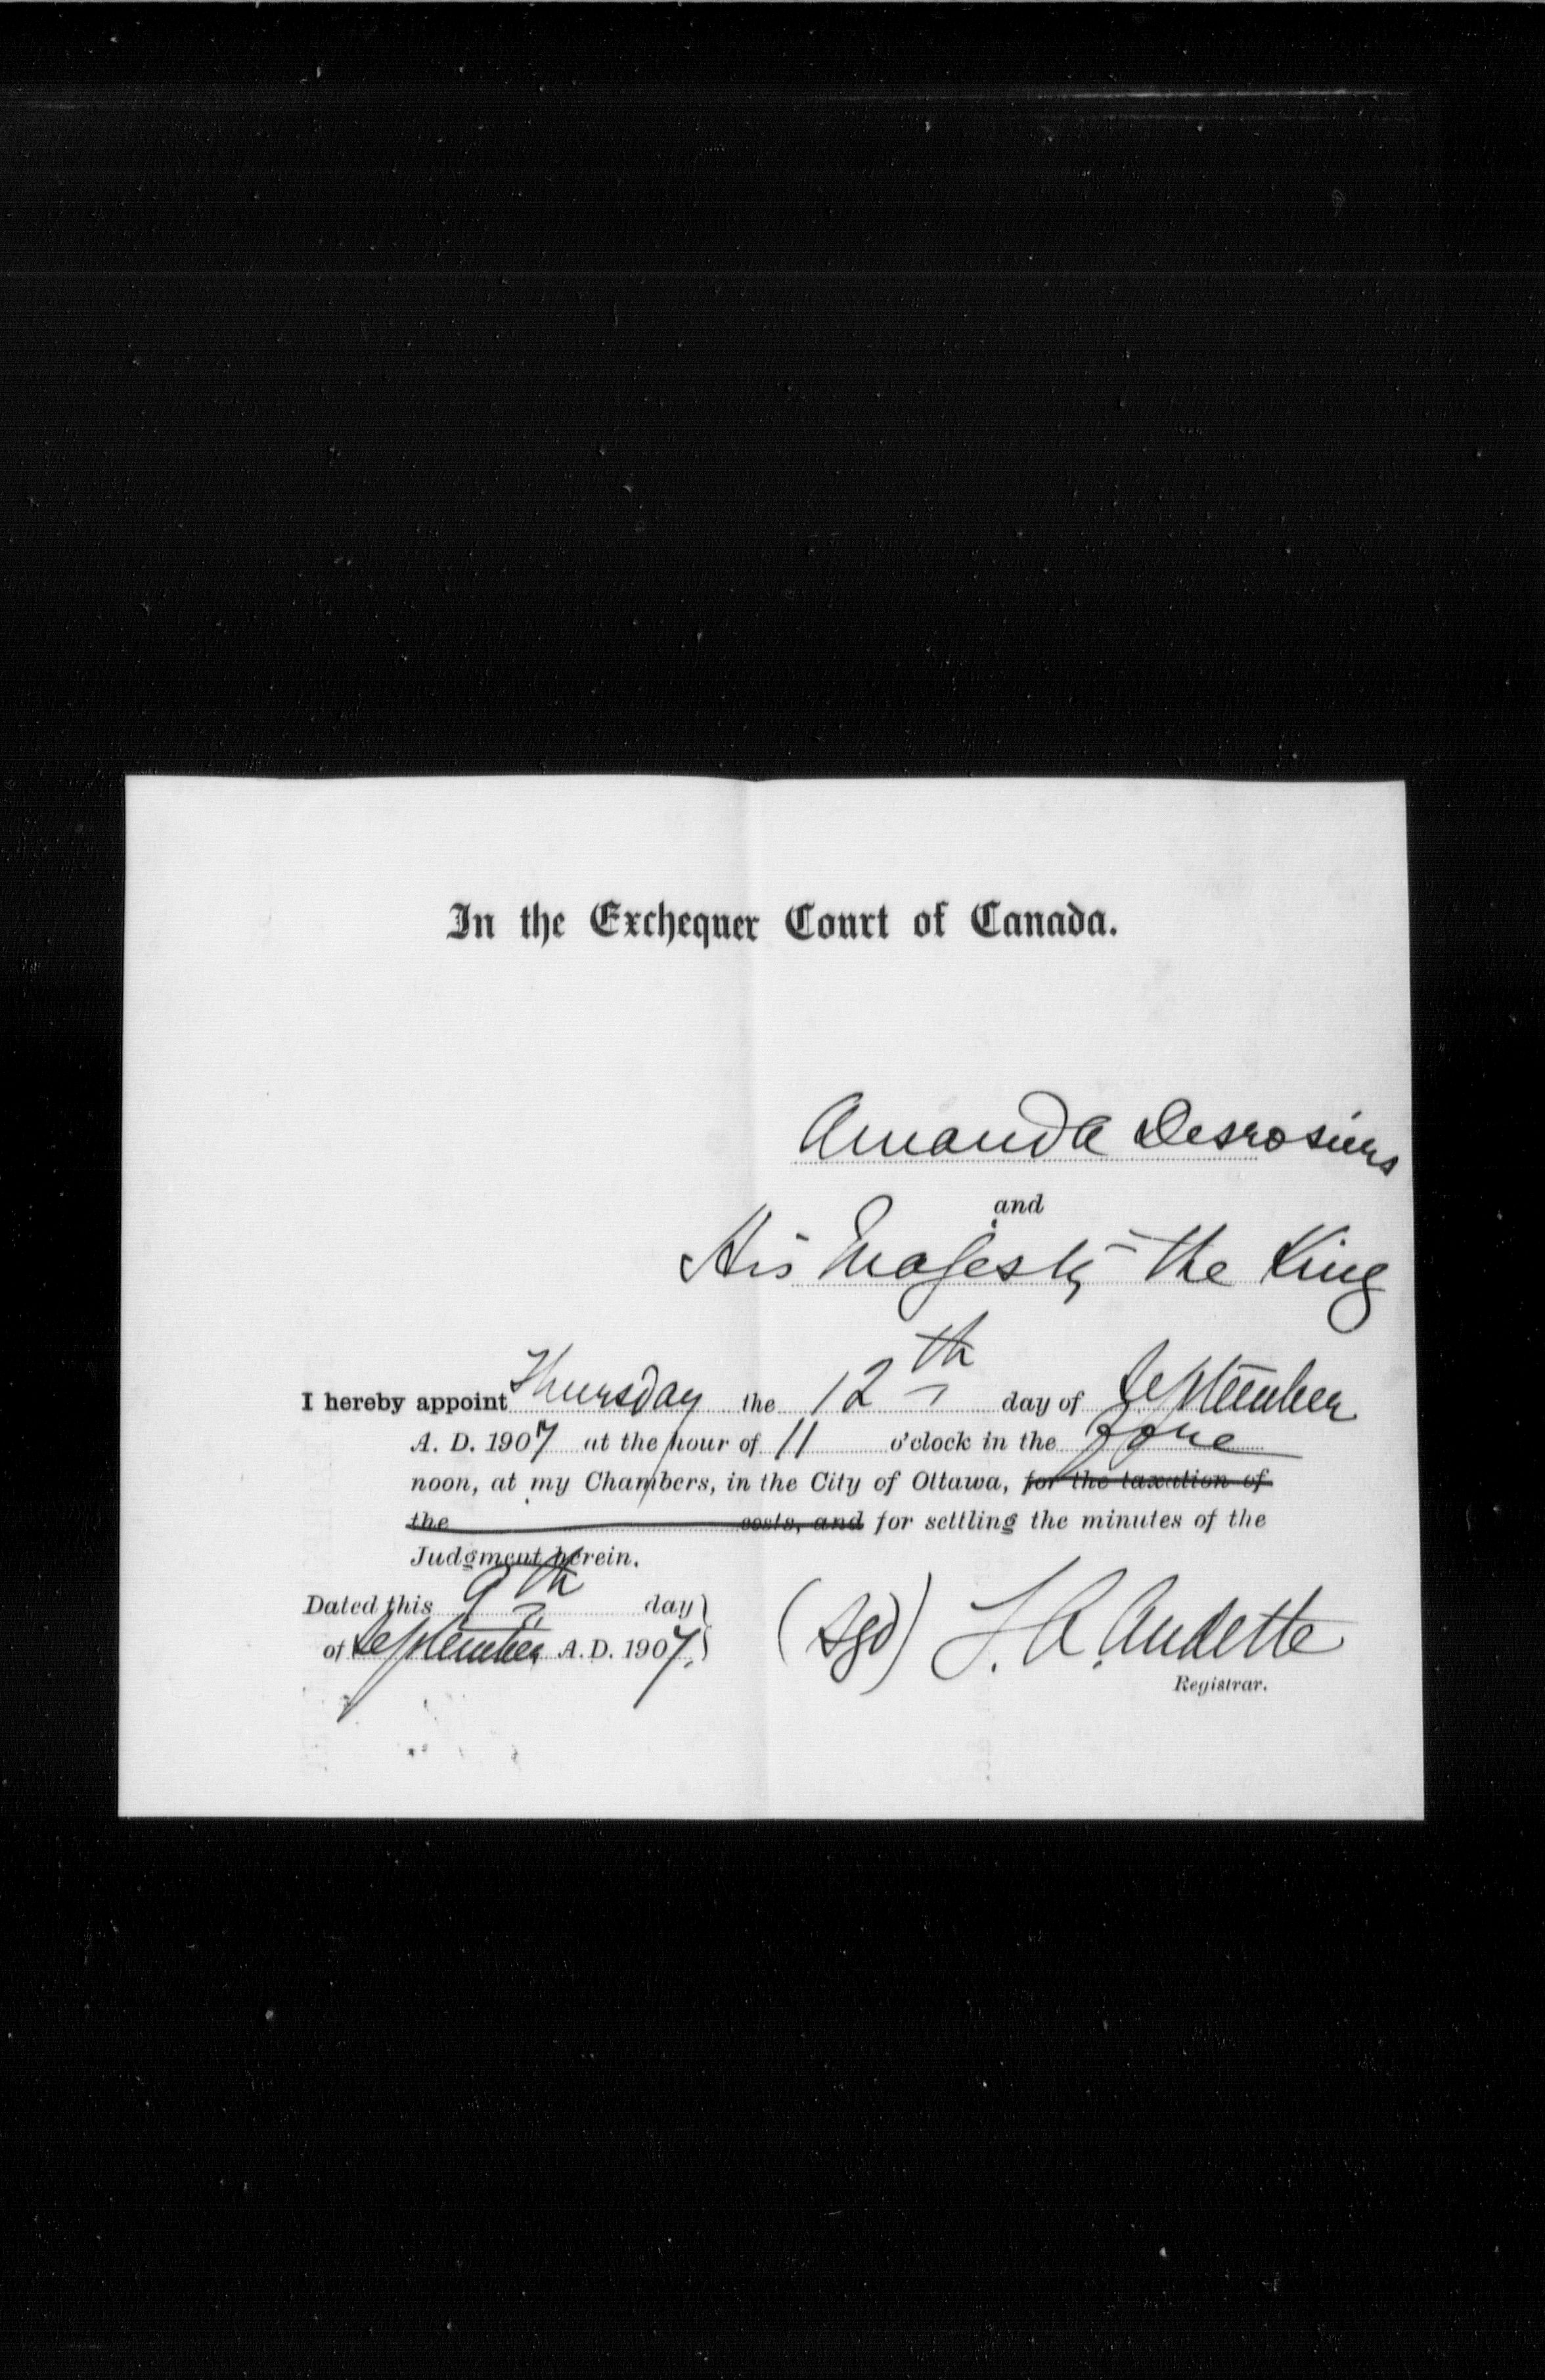 In the Exchequer Court of Canada.
Amanda Desrosiers
and
His Majesty the King
I hereby appoint Thursday the 12th day of September
A. D. 1907 at the hour of 11 o'clock in the fore
noon, at my Chambers, in the City of Ottawa, for the taxation of
the costs, and for settling the minutes of the
Judgment herein.
Dated this 9th day
of September A. D. 1907.
(Sgd) L. A. Audette
Registrar.